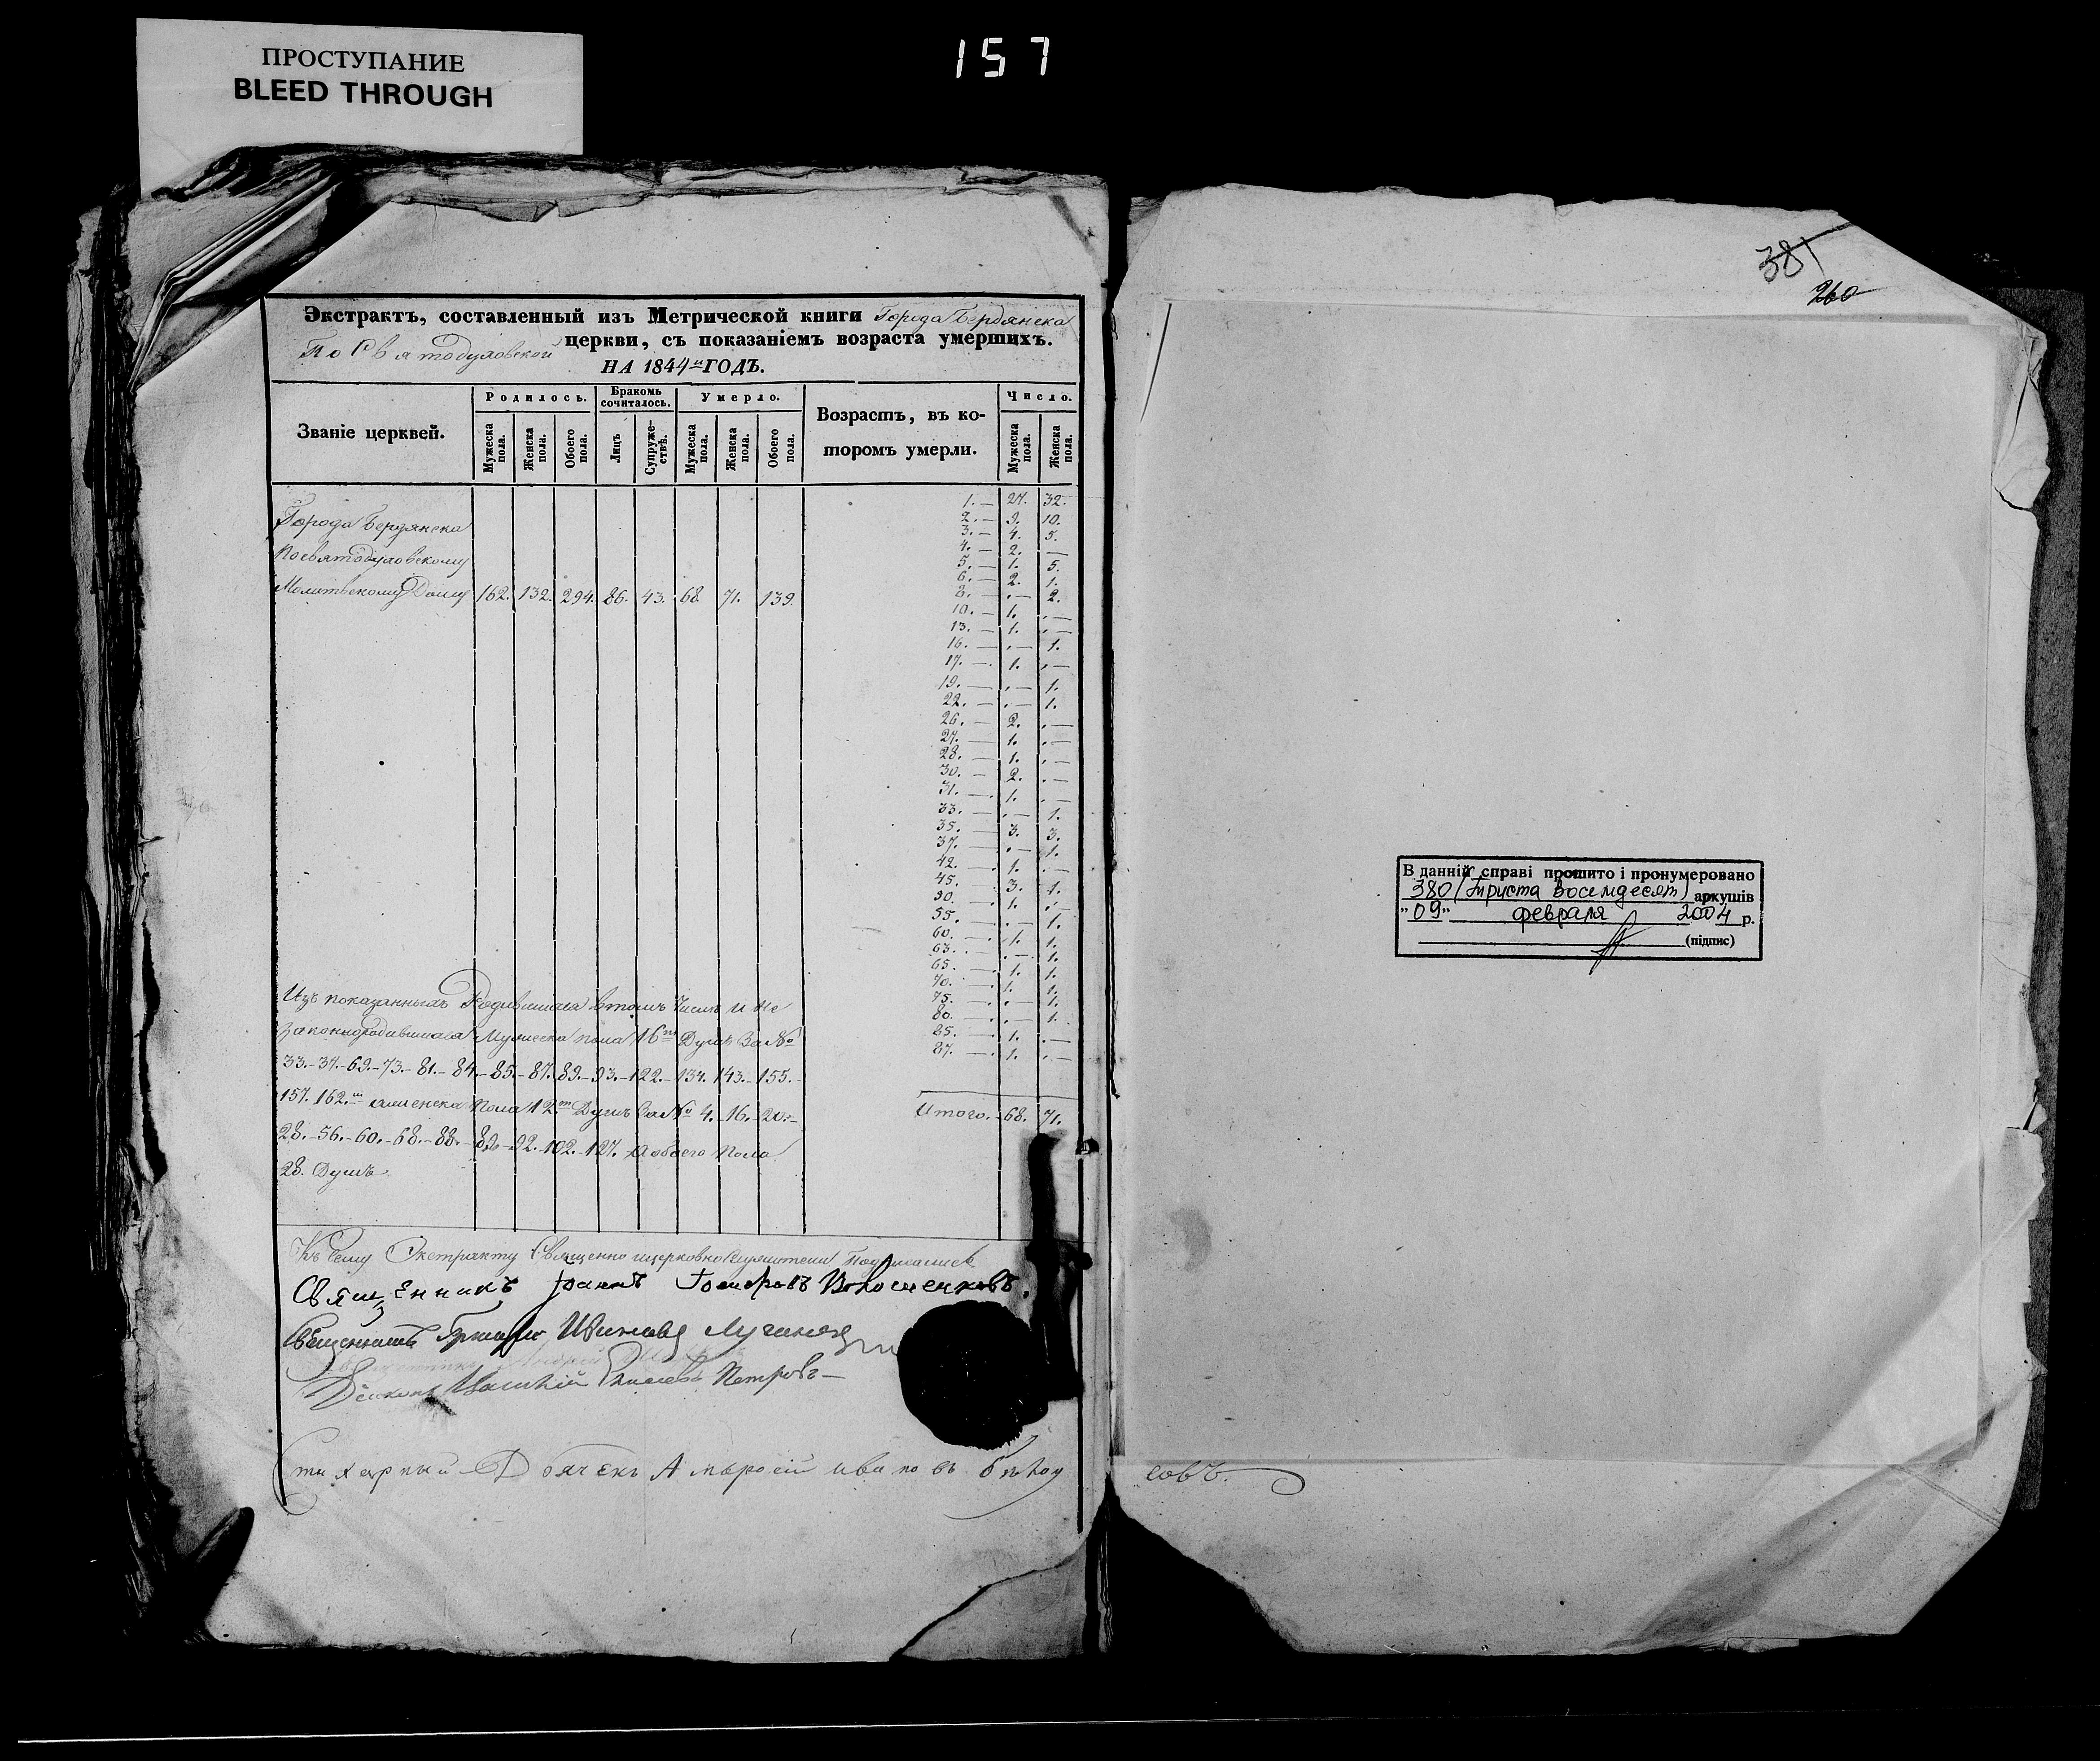 ПРОСТУПАНИЕ
BLEED THROUGH
157
Экстрактъ, составленный изъ Метрической книги Города Бердянска
По Святодуховской церкви, съ показаніемъ возраста умершихъ.
НА 1844й ГОДЪ.
Званіе церквей.
Родилось.
Мужеска пола.
Женска пола.
Обоего пола.
Бракомъ сочиталось.
Лицъ
Супружествъ.
Умерло.
Мужеска пола.
Женска пола.
Обоего пола.
Возрастъ, въ котоpомъ умерли.
Число.
Мужеска пола.
Женска пола.
Города Бердянска
Посвятодуховскому
Молитвеному Дому 162. 132. 294. 86. 43. 68. 71. 139.
1. — 27. 32.
2. — 9. 10.
3. — 4. 5.
4. — 2. —
5. — 1. 5.
6. — 2. 1.
8. — . — 2.
10. — 1. . —
13. — 1. . —
16. — . — 1.
17. — 1. . —
19. — . — 1.
22. — . — 1.
26. — 2. . —
27. — 1. . —
28. — 1. . —
30. — 2. . —
31. — 1. . —
33. — . — 1.
35. — 3. 3.
37. — . — 1.
42. — 1. . —
45. — 3. 1.
50. — 1. . —
55. — . — 1.
60. — 1. 1.
63. — . — 1.
65. — 1. 1.
70. — 1. 1.
75. — . — 1.
80. — . — 1.
85. — 1. . —
87. — 1. . —
Итого. 68. 71.
Изъ показанныхъ Родившихся втомъ Числѣ и не
законнородившихся Мужеска пола 16ть Душъ За №
33.-37.-69.-73.-81.-84.-85.-87.-89.-93.-122.-134. 143.-155.-
157. 162. аженска Пола 12ть Душъ за № 4. 16. 20.-
28.-56.-60.-68.-88.-89.-92. 102.-127. Аобоего Пола
28. Душъ.
Къ Сему Экстракту Священно ицерковнослужители Подписались
Священникъ Іоаннъ Волошенковъ.
Священникъ Лучинск
Діаконъ Василій Петровъ —
Стихарный Дьячекъ Амвросій ивановъ бѣлоу
совъ.
381
260
В данній справі прошито і пронумеровано
380 (триста восемдесят) аркушів
"09" февраля 2004 р.
(підпис)